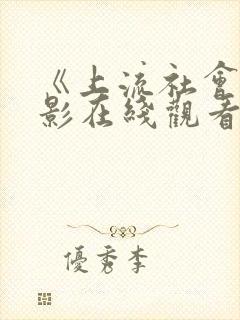 《上流社會
影在綫觀看
優秀李